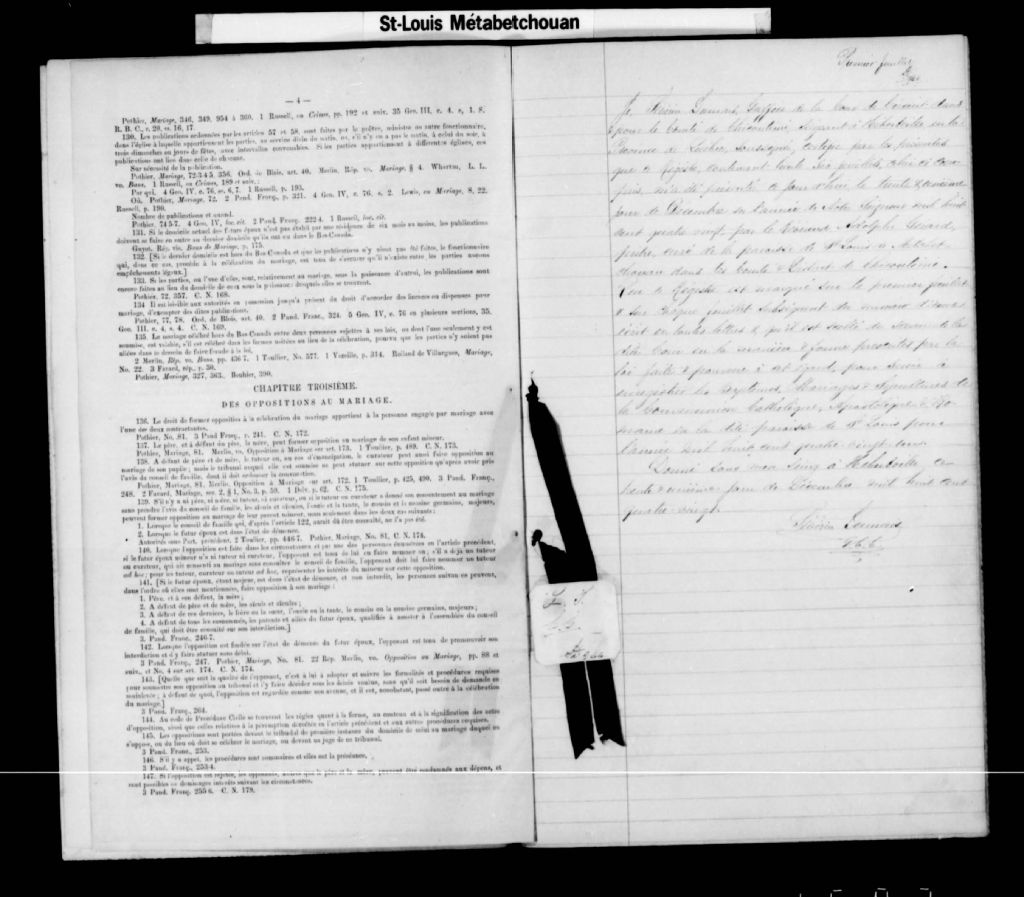 St-Louis Métabetchouan
— 4 —
Pothier, Mariage, 346, 349, 354 à 360. 1 Russell, on Crimes, pp. 192 et suiv. 35 Geo. III, c. 4, s. 1. S.
R. B. C., c. 20, ss. 16, 17
130. Les publications ordonnées par les articles 57 et 58, sont faites par le prêtre, ministre ou autre fonctionnaire,
dans l'église à laquelle appartiennent les parties, au service divin du matin, ou, s'il n'y en a pas le matin, à celui du soir, à
trois dimanches ou jours de fêtes, avec intervalles convenables. Si les parties appartiennent à différentes églises, ces
publications ont lieu dans celle de chacune.
Sur nécessité de la publication.
Pothier, Mariage, 72-3-4-5, 356. Ord. de Blois, art. 40. Merlin, Rép. vo. Mariage, § 4. Wharton, L. L.
vo. Bans, 1 Russell, on Crimes, 189 et suiv.:
Par qui. 4 Geo. IV, c. 76, ss. 6, 7. 1 Russell, p. 193.
Où. Pothier, Mariage, 72. 2 Pand. Franç., p. 321. 4 Geo. IV, c. 76, s. 2. Lewis, on Mariage, 8, 22.
Russell, p. 190.
Nombre de publications et quand.
Pothier, 74 5-7. 4 Geo. IV, loc. cit. 2 Pand. Franç. 222-4. 1 Russell, loc. cit.
131. Si le domicile actuel des futurs époux n'est pas établi par une résidence de six mois au moins, les publications
doivent se faire en outre au dernier domicile qu'ils ont eu dans le Bas-Canada.
Guyot, Rép. vis. Bans de Mariage, p. 175.
132. [Si le dernier domicile est hors du Bas-Canada et que les publications n'y aient pas été faites, le fonctionnaire
qui, dans ce cas, procède à la célébration du mariage, est tenu de s'assurer qu'il n'existe entre les parties aucuns
empêchements légaux.]
133. Si les parties, ou l'une d'elles, sont, relativement au mariage, sous la puissance d'autrui, les publications sont
encore faites au lieu du domicile de ceux sous la puissance desquels elles se trouvent.
Pothier, 72, 357. C. N. 168.
134 Il est loisible aux autorités en possession jusqu'à présent du droit d'accorder des licences ou dispenses pour
mariage, d'exempter des dites publications.
Pothier, 77, 78. Ord. de Blois, art. 40. 2 Pand. Franc. 324. 5 Geo. IV, c. 76 en plusieurs sections, 35.
Geo. III, c. 4, s. 4. C. N. 169.
135. Le mariage célébré hors du Bas-Canada entre deux personnes sujettes à ses lois, ou dont l'une seulement y est
soumise, est valable, s'il est célébré dans les formes usitées au lieu de la célébration, pourvu que les parties n'y soient pas
allées dans le dessein de faire fraude à la loi.
2 Merlin, Rép. vo. Bans, pp. 436-7. 1 Toullier, No. 577. 1 Vazeille, p. 314. Rolland de Villargues, Mariage,
No. 22. 3 Favard, rép., p. 50.
Pothier, Mariage, 327, 363. Bouhier, 390.
CHAPITRE TROISIÈME.
DES OPPOSITIONS AU MARIAGE.
136. Le droit de former opposition à la célébration du mariage appartient à la personne engagée par mariage avec
l'une des deux contractantes.
Pothier, No. 81. 3 Pand Franç, p. 241. C. N. 172.
137. Le père, et à défaut du père, la mère, peut former opposition au mariage de son enfant mineur.
Pothier, Mariage, 81. Merlin, vo. Opposition à Mariage sur art. 173. 1 Toullier, p. 489. C. N. 173.
138. A défaut de père et de mère, le tuteur ou, au cas d'émancipation, le curateur peut aussi faire opposition au
mariage de son pupille; mais le tribunal auquel elle est soumise ne peut statuer sur cette opposition qu'après avoir pris
l'avis du conseil de famille, dont il doit ordonner la convocation.
Pothier, Mariage, 81. Merlin, Opposition à Mariage sur art. 172. 1 Toullier, p. 425, 490. 3 Pand. Franç.,
248. 2 Favard, Mariage, sec. 2, § 1, No. 3, p. 59. 1 Delv. p. 62. C. N. 175.
139. S'il n'y a ni père, ni mère, ni tuteur, ni curateur, ou si le tuteur ou curateur a donné son consentement au mariage
sans prendre l'avis du conseil de famille, les aïeuls et aïeules, l'oncle et la tante, le cousin et la cousine germains, majeurs,
peuvent former opposition au mariage de leur parent mineur, mais seulement dans les deux cas suivants:
1. Lorsque le conseil de famille qui, d'après l'article 122, aurait dû être consulté, ne l'a pas été.
2. Lorsque le futur époux est dans l'état de démence.
Autorités sous l'art. précédent. 2 Toullier, pp. 446-7. Pothier, Mariage, No. 81, C. N. 174.
140. Lorsque l'opposition est faite dans les circonstances et par une des personnes énumérées en l'article précédent,
si le futur époux mineur n'a ni tuteur ni curateur, l'opposant est tenu de lui en faire nommer un; s'il a déjà un tuteur
ou curateur, qui ait consenti au mariage sans consulter le conseil de famille, l'opposant doit lui faire nommer un tuteur
ad hoc; pour les tuteur, curateur ou tuteur ad hoc, représenter les intérêts du mineur sur cette opposition.
141. [Si le futur époux, étant majeur, est dans l'état de démence, et non interdit, les personnes suivantes peuvent,
dans l'ordre où elles sont mentionnées, faire opposition à son mariage:
1. Père, et à son défaut, la mère;
2. A défaut de père et de mère, les aïeuls et aïeules;
3. A défaut de ces derniers, le frère ou la sœur, l'oncle ou la tante, le cousin ou la cousine germains, majeurs;
4. A défaut de tous les susnommés, les parents et alliés du futur époux, qualifiés à assister à l'assemblée du conseil
de famille, qui doit être consulté sur son interdiction.]
3. Pand. Franc., 246-7.
142. Lorsque l'opposition est fondée sur l'état de démence du futur époux, l'opposant est tenu de promouvoir son
interdiction et d'y faire statuer sans délai.
3 Pand. Franç., 247. Pothier, Mariage, No. 81. 22 Rép. Merlin, vo. Opposition au Mariage, pp. 88 et
suiv., et No. 4 sur art. 174. C. N. 174.
143. [Quelle que soit la qualité de l'opposant, c'est à lui à adopter et suivre les formalités et procédures requises
pour soumettre son opposition au tribunal et l'y faire décider sous les délais voulus, sans qu'il soit besoin de demande en
mainlevée; à défaut de quoi, l'opposition est regardée comme non avenue, et il est, nonobstant, passé outre à la célébration
du mariage.]
3 Pand. Franç., 264.
144. Au code de Procédure Civile se trouvent les règles quant à la forme, au contenu et à la signification des actes
d'opposition, ainsi que celles relatives à la péremption décrétée en l'article précédent et aux autres procédures requises.
145. Les oppositions sont portées devant le tribunal de première instance du domicile de celui au mariage duquel on
s'oppose, ou du lieu où doit se célébrer le mariage, ou devant un juge de ce tribunal.
3 Pand. Franc., 253.
146. S'il y a appel, les procédures sont sommaires et elles ont la préséance.
3 Pand. Franç., 253-4.
147. Si l'opposition est rejetée, les opposants, autres que le père et la mère, peuvent être condamnés aux dépens, et
sont passibles de dommages-intérêts suivant les circonstances.
3 Pand. Franç. 255-6. C. N. 179.
Premier feuillet
Je, Séverin Dumais, Greffier de la Cour de Circuit dans
& pour le Comté de Chicoutimi, résidant à Hébertville en la
Province de Québec, soussigné, certifie par les présentes
que ce Régiste, contenant feuillets, celui-ci
m'a été présenté ce jour d'hui le trente & unième
jour de Décembre en l'année de Notre Seigneur mil huit
cent quatre vingt par le Révérend Adolphe Girard,
prêtre, curé de la paroisse de St Louis de Métabet-
chouan dans les Comté & District de Chicoutimi.
Que ce Régistre est marqué sur le premier feuillet
& sur chaque feuillet subséquent du numéro d'icelui
écrit en toutes lettres & qu'il est scellé du sceau de la
dite Cour en la manière & forme prescrites par la
loi faite & pourvue à cet égard, pour servir à
enregistrer les Baptêmes, Mariages & Sépultures de
la Communion Catholique, Apostolique & Ro-
maine de la dite paroisse de St Louis pour
l'année mil huit cent quatre-vingt-un.
Donné sous mon seing à Hébertville, ce
trente & unième jour de Décembre mil huit cent
quatre-vingt.
Séverin Dumais